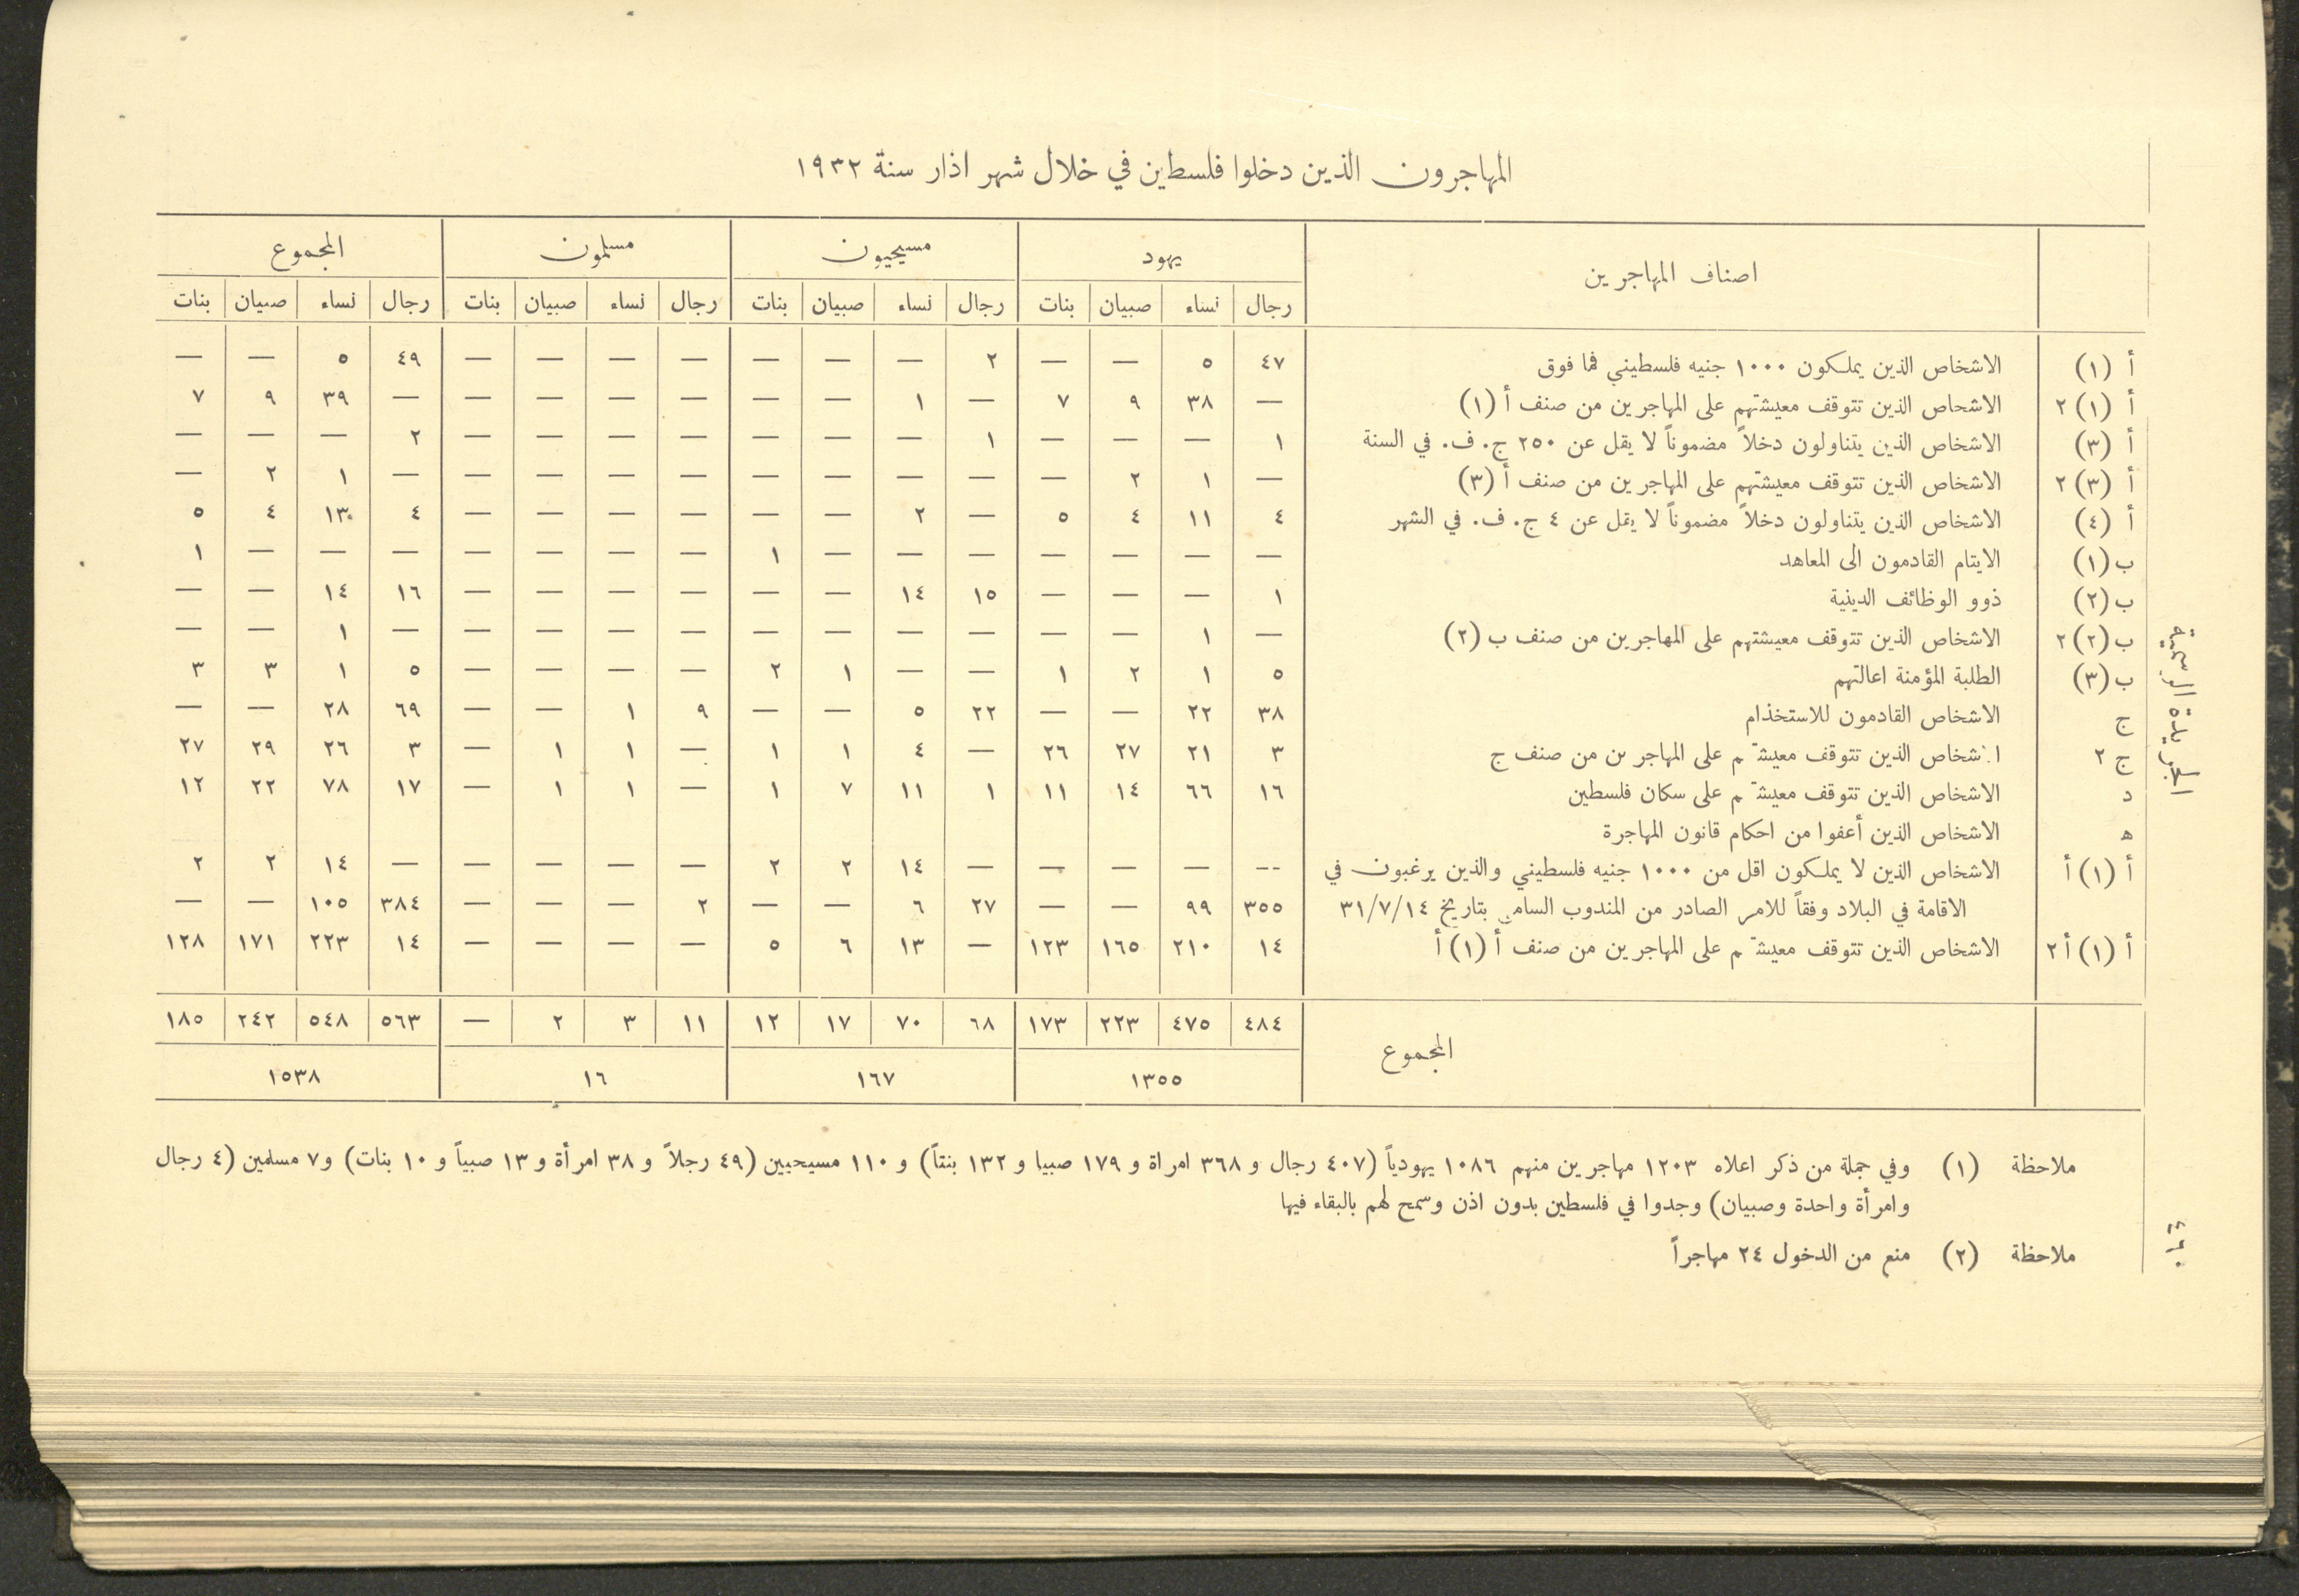 المهاجرون الذين دخلوا فلسطين في خلال شهر اذار سنة ١٩٣٢
اصناف المهاجرين يهود مسيحيون مسلمون المجموع
رجال نساء صبيان بنات رجال نساء صبيان بنات رجال نساء صبيان بنات رجال نساء صبيان بنات
أ (١) الاشخاص الذين يملكون ١٠٠٠ جنيه فلسطيني فما فوق ٤٧ ٥ — — ٢ — — — — — — — ٤٩ ٥ — —
أ (١) ٢ الاشحاص الذين تتوقف معيشتهم على المهاجرين من صنف أ (١) — ٣٨ ٩ ٧ — ١ — — — — — — — ٣٩ ٩ ٧
أ (٣) الاشخاص الذين يتناولون دخلاً مضموناً لا يقل عن ٢٥٠ ج. ف. في السنة ١ — — — ١ — — — — — — — ٢ — — —
أ (٣) ٢ الاشخاص الذين تتوقف معيشتهم على المهاجرين من صنف أ (٣) — ١ ٢ — — — — — — — — — — ١ ٢ —
أ (٤) الاشخاص الذين يتناولون دخلاً مضموناً لا يقل عن ٤ ج. ف. في الشهر ٤ ١١ ٤ ٥ — ٢ — — — — — — ٤ ١٣ ٤ ٥
ب (١) الايتام القادمون الى المعاهد — — — — — — — ١ — — — — — — — ١
ب (٢) ذوو الوظائف الدينية ١ — — — ١٥ ١٤ — — — — — — ١٦ ١٤ — —
ب (٢) ٢ الاشخاص الذين تتوقف معيشتهم على المهاجرين من صنف ب (٢) — ١ — — — — — — — — — — — ١ — —
ب (٣) الطلبة المؤمنة اعالتهم ٥ ١ ٢ ١ — — ١ ٢ — — — — ٥ ١ ٣ ٣
ج الاشخاص القادمون للاستخذام ٣٨ ٢٢ — — ٢٢ ٥ — — ٩ ١ — — ٦٩ ٢٨ — —
ج ٢ الاشخاص الذين تتوقف معيشتهم على المهاجرين من صنف ج ٣ ٢١ ٢٧ ٢٦ — ٤ ١ ١ — ١ ١ — ٣ ٢٦ ٢٩ ٢٧
د الاشخاص الذين تتوقف معيشتهم على سكان فلسطين ١٦ ٦٦ ١٤ ١١ ١ ١١ ٧ ١ — ١ ١ — ١٧ ٧٨ ٢٢ ١٢
ه الاشخاص الذين أعفوا من احكام قانون المهاجرة
أ (١) أ الاشخاص الذين لا يملكون اقل من ١٠٠٠ جنيه فلسطيني والذين يرغبون في — — — — — ١٤ ٢ ٢ — — — — — ١٤ ٢ ٢
الاقامة في البلاد وفقاً للامر الصادر من المندوب السامي بتاريخ ٣١/٧/١٤ ٣٥٥ ٩٩ — — ٢٧ ٦ — — ٢ — — — ٣٨٤ ١٠٥ — —
أ (١) أ ٢ الاشخاص الذين تتوقف معيشتهم على المهاجرين من صنف أ (١) أ ١٤ ٢١٠ ١٦٥ ١٢٣ — ١٣ ٦ ٥ — — — — ١٤ ٢٢٣ ١٧١ ١٢٨
المجموع ٤٨٤ ٤٧٥ ٢٢٣ ١٧٣ ٦٨ ٧٠ ١٧ ١٢ ١١ ٣ ٢ — ٥٦٣ ٥٤٨ ٢٤٢ ١٨٥
١٣٥٥ ١٦٧ ١٦ ١٥٣٨
ملاحظة (١) وفي جملة من ذكر اعلاه ١٢٠٣ مهاجرين منهم ١٠٨٦ يهودياً (٤٠٧ رجال و ٣٦٨ امراة و ١٧٩ صبيا و ١٣٢ بنتاً) و ١١٠ مسيحيين (٤٩ رجلاً و ٣٨ امرأة و ١٣ صبياً و ١٠ بنات) و ٧ مسلمين (٤ رجال
وامرأة واحدة وصبيان) وجدوا في فلسطين بدون اذن وسمح لهم بالبقاء فيها
ملاحظة (٢) منع من الدخول ٢٤ مهاجراً
الجريدة الرسمية